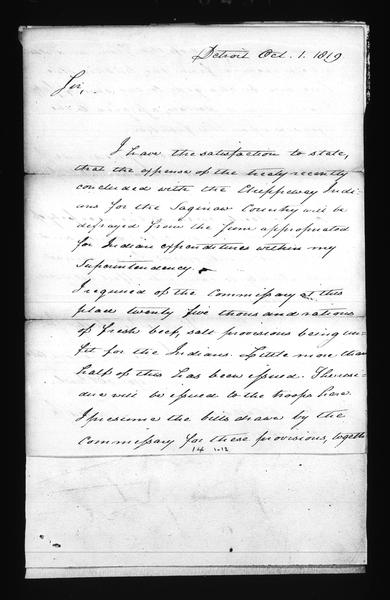 Detroit Oct. 1. 1819
Sir,
I have the satisfaction to state,
that the expense of the treaty recently
concluded with the Chippeway Indi-
ans for the Saginaw Country will be
defrayed from the sum appropriated
for Indian expenditures within my
Superintendency.
I required of the Commissary at this
place twenty five thousand rations
of fresh beef, salt provisions being un-
fit for the Indians. Little more than
half of this has been issued. The resi-
due will be issued to the troops here.
I presume the bills drawn by the
Commissary for these provisions, togethe
14